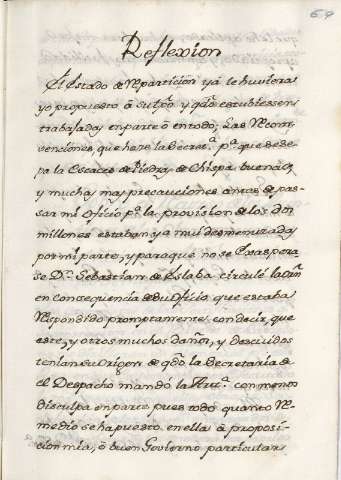 69
Reflexion
El Estado de reparticion ya le huviera
yo propuesto à su tpõ. y qdõ. estubiessen
trabajaday enparte ò entodo; Las recon-
venciones que hace la Secretª. pª. que desse-
pa la Escases de Piedra de Chispa buenas,
y muchas mas precauciones antes de pas-
sar mi Oficio pª. la provision de los dos
millones estaban ya mui desmenuzadas
por mi parte, y paraque no se Exaspera-
se Dn. Sebastian de Eslaba circulé la Orn
en consequencia de su Oficio que estaba
respondido promptamente con decir, que
este, y otros muchos daños, y descuidos
tenian su Origen de qdõ. la Secretaria de
el Despacho mandò la Artª. con menos
disculpa enparte pues todo quanto re-
medio se ha puesto en ella à proposi-
cion mia, ò buen Govierno particular